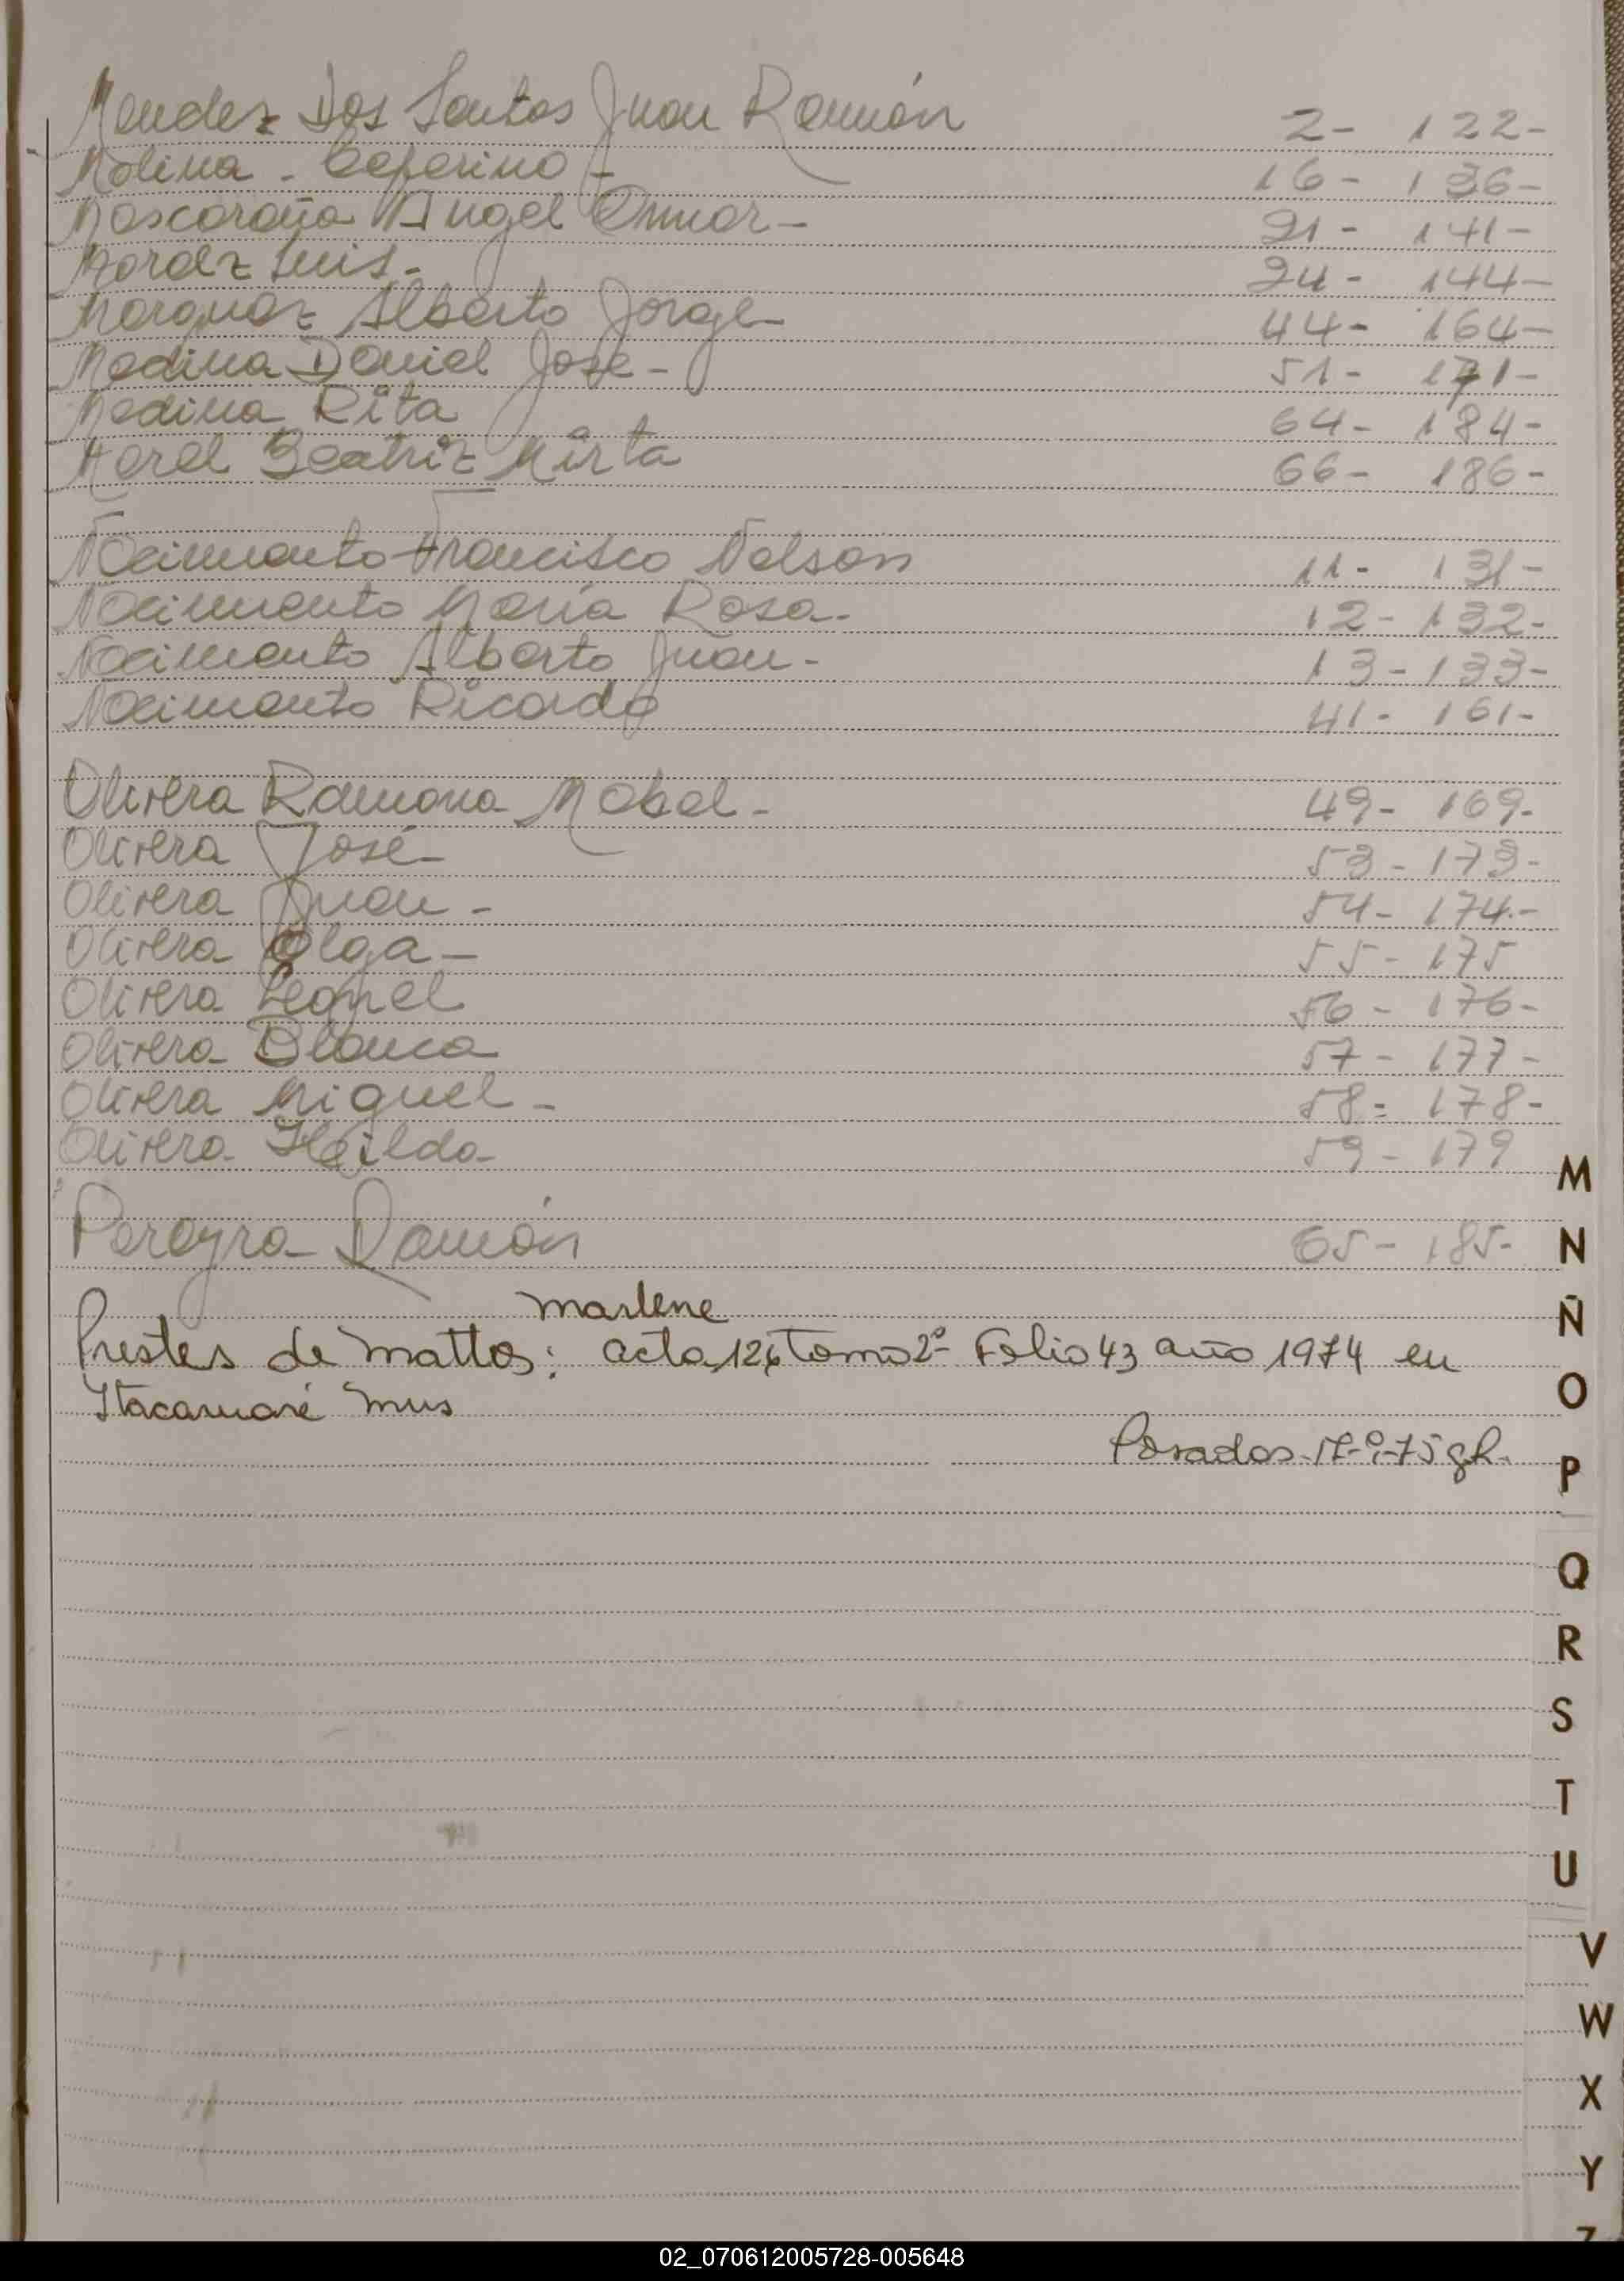 Mendez Dos Santos Juan Ramón 2- 122-
Molina - Ceferino - 16- 136-
Mascaraña Angel Omar - 21- 141-
Moraez Luis - 24- 144-
Marquez Alberto Jorge - 44- 164-
Medina Daniel José - 51- 171-
Medina Rita 64- 184-
Morel Beatriz Mirta 66- 186-
Nacimento Francisco Nelson 11- 131-
Nacimento María Rosa - 12- 132-
Nacimento Alberto Juan - 13- 133-
Nacimento Ricardo 41- 161-
Olivera Ramona Mabel - 49- 169-
Olivera José - 53- 173-
Olivera Juan - 54- 174-
Olivera Olga - 55- 175
Olivera Leonel 56- 176-
Olivera Blanca 57- 177-
Olivera Miguel - 58- 178-
Olivera Hilda 59- 179
Pereyra Ramón 65- 185-
Marlene
Prestes de Mattos: acta 126 Tomo 2º Folio 43 año 1974 en
Itacaruaré Mns
Posadas
M
N
Ñ
O
P
Q
R
S
T
U
V
W
X
Y
Z
02_070612005728-005648